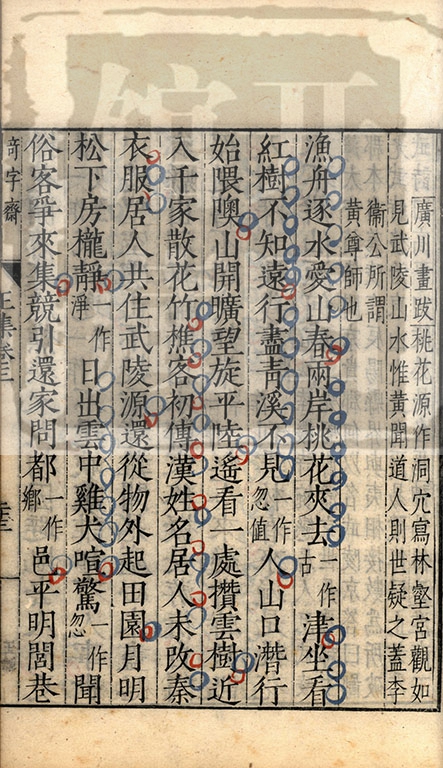 廣川畫跋桃花源作洞穴寫林壑宮觀如
見武陵山水惟黃聞道人則世疑之蓋李
衞公所謂
黃尊師也
漁舟逐水愛山春兩岸桃花夾去一作古津坐看
紅樹不知遠行盡青溪不見一作忽值人山口潛行
始隈隩山開曠望旋平陸遙看一處攢雲樹近
入千家散花竹樵客初傳漢姓名居人未改秦
衣服居人共住武陵源還從物外起田園月明
松下房櫳靜一作淨日出雲中雞犬喧驚一作忽聞
俗客爭來集競引還家問都一作鄉邑平明閭巷
奇字齋